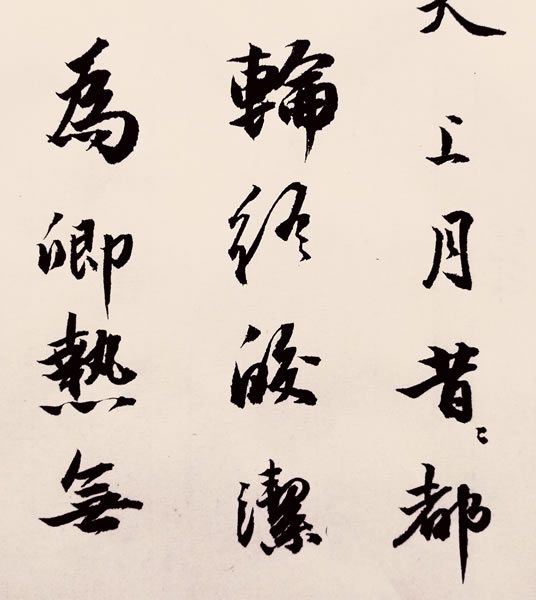 天上月昔〻都
輪終皎潔
為卿熱無